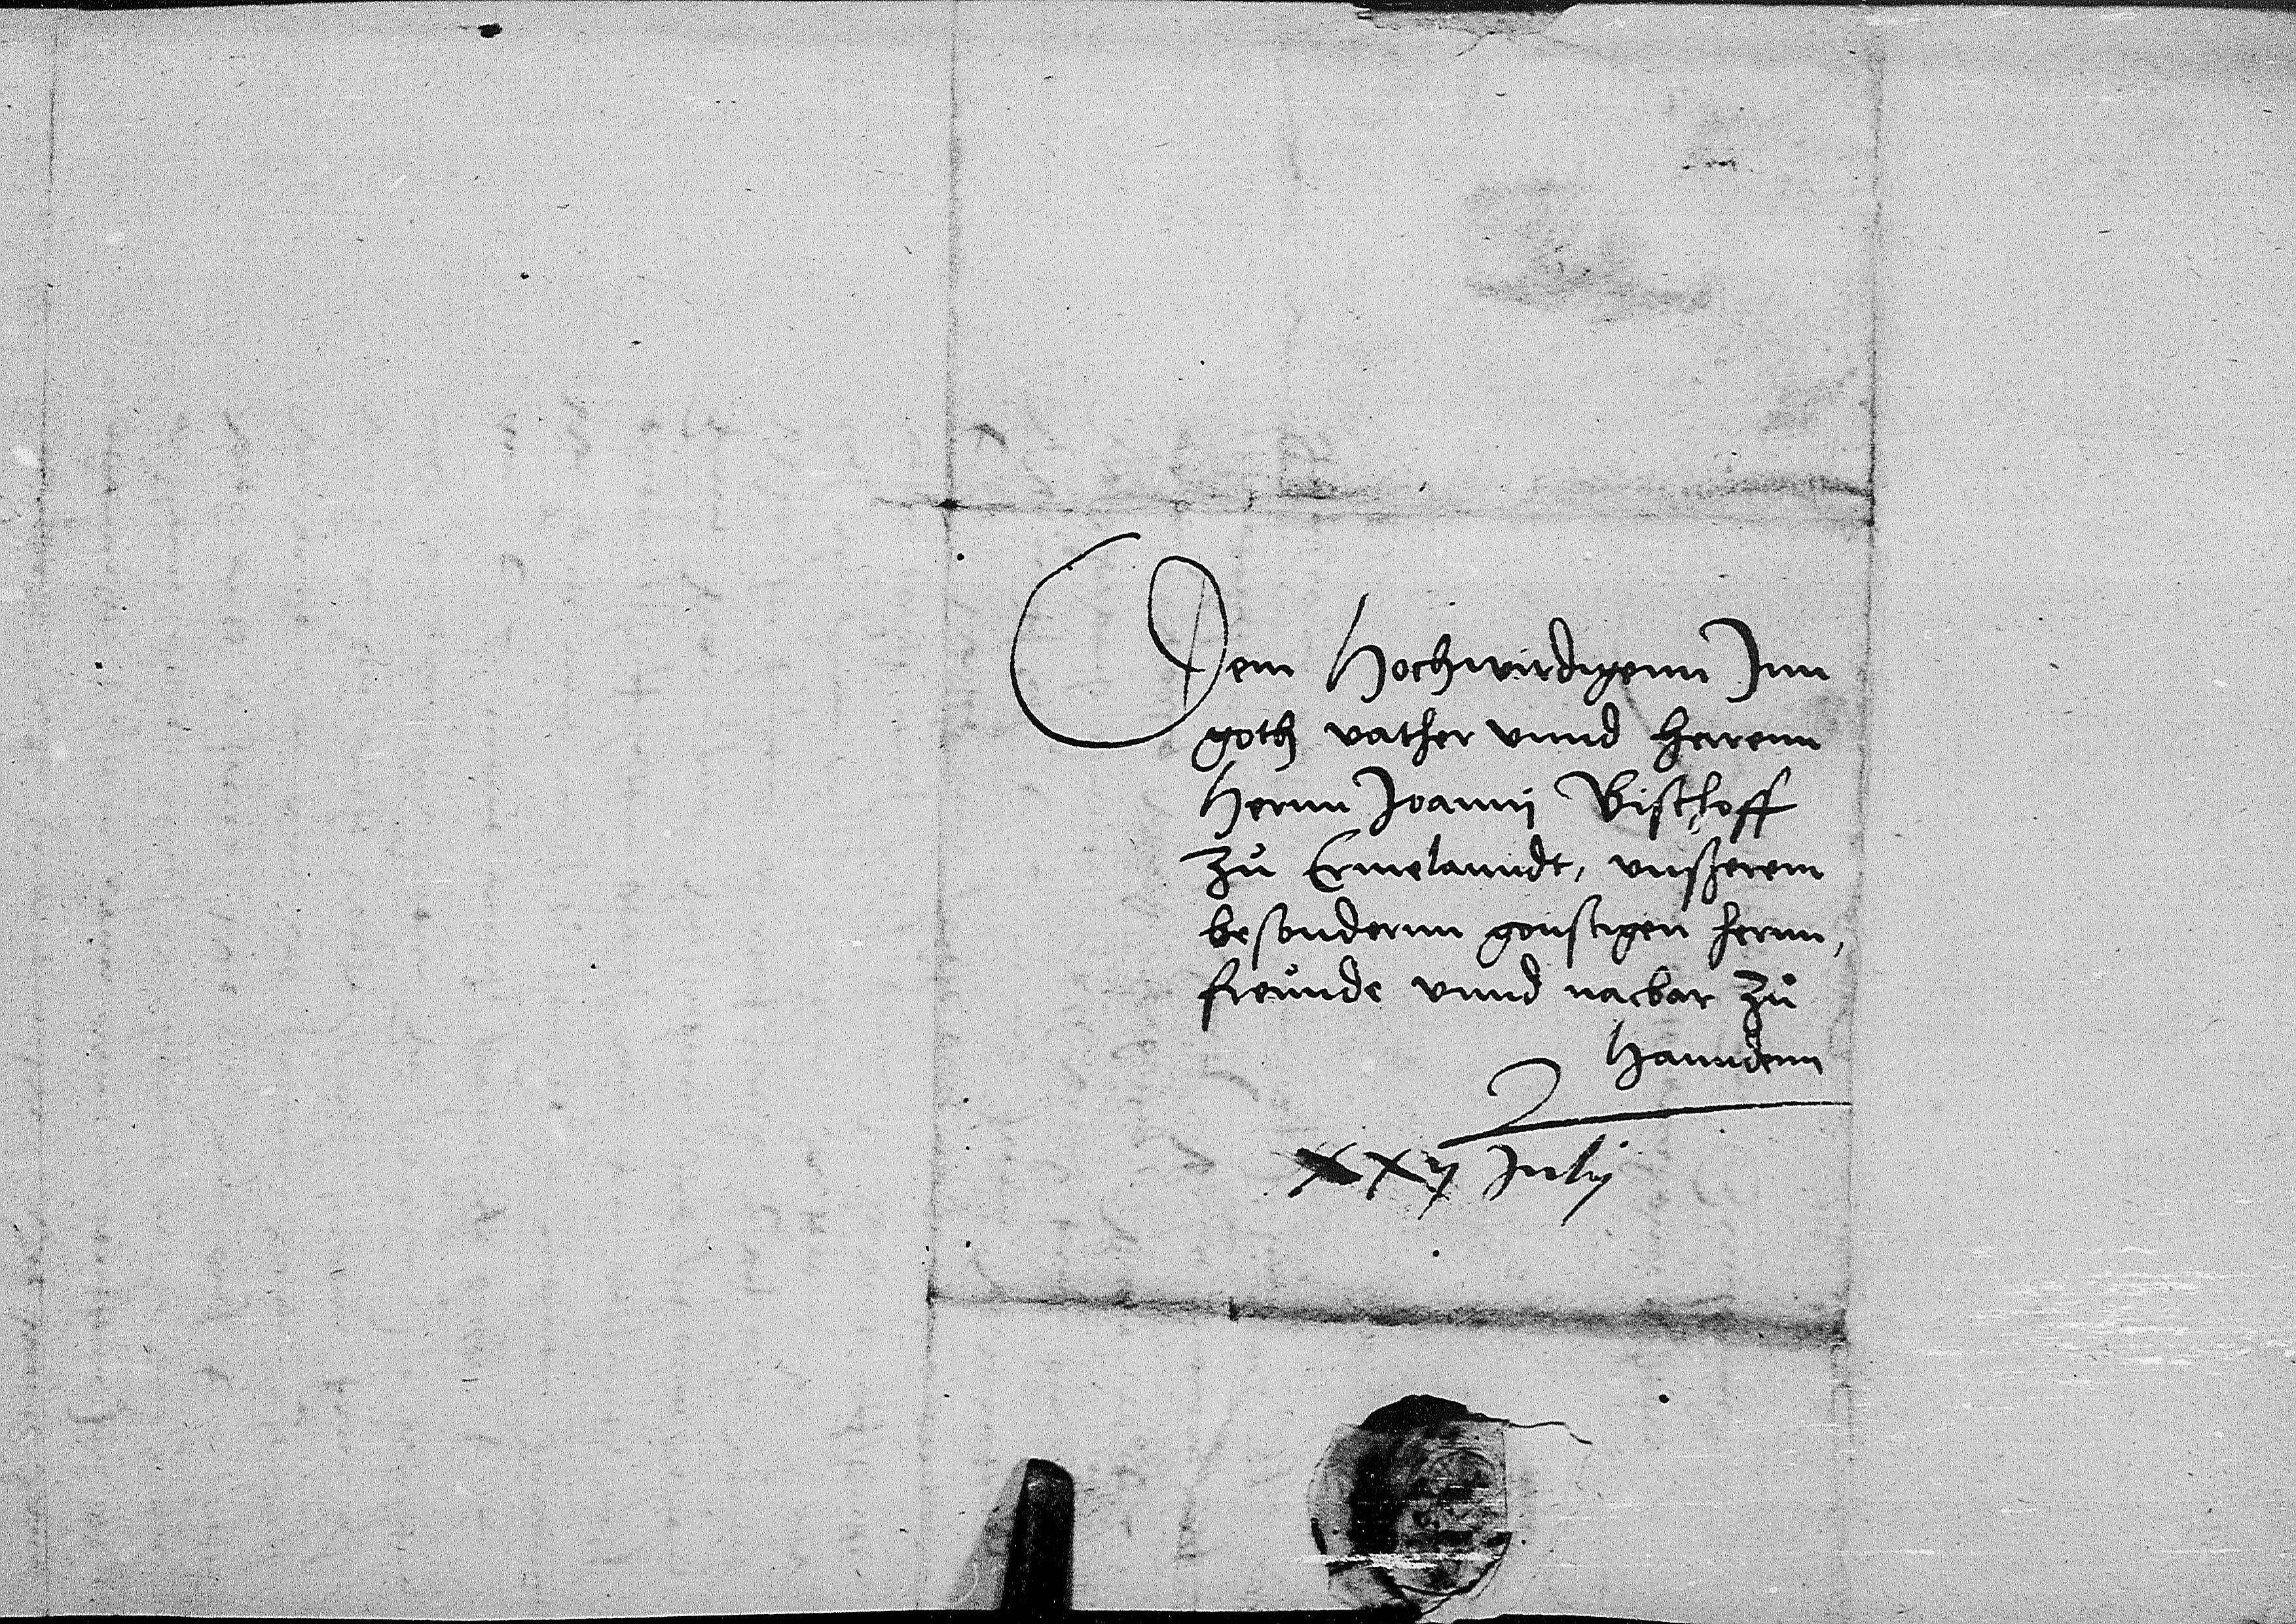 Dem Hochwirdigenn Inn
goth vather vnnd herrenn
Hernn Joanni Bischoff
zů Ermelanndt, vnßerem
besondernn gonstigen hernn,
freůnde vnnd nacbar zů
Hanndenn
XXij Julij